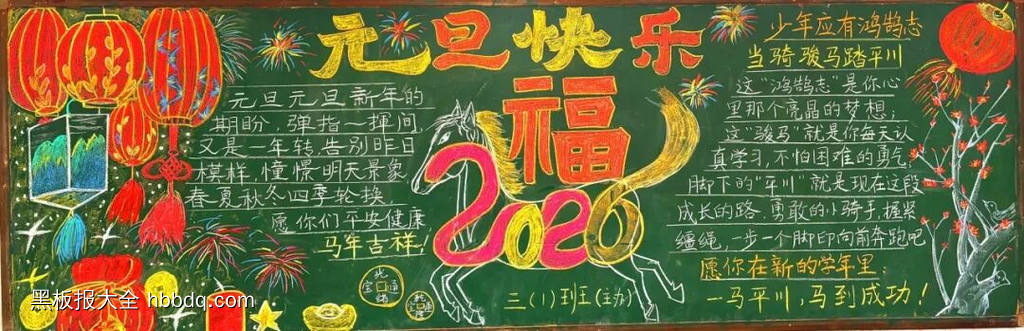 元旦快乐
福
2026
元旦元旦新年的
期盼，弹指一挥间，
又是一年转，告别昨日
模样，憧憬明天景象
春夏秋冬四季轮换，
愿你们平安健康
马年吉祥！
少年应有鸿鹄志
当骑骏马踏平川
这“鸿鹄志”是你心
里那个亮晶的梦想；
这“骏马”就是你每天认
真学习，不怕困难的勇气，
脚下的“平川”就是现在这段
成长的路。勇敢的小骑手，握紧
缰绳，一步一个脚印向前奔跑吧
愿你在新的学年里：
一马平川，马到成功！
三（1）班（主办）
黑板报大全 hbbdq.com